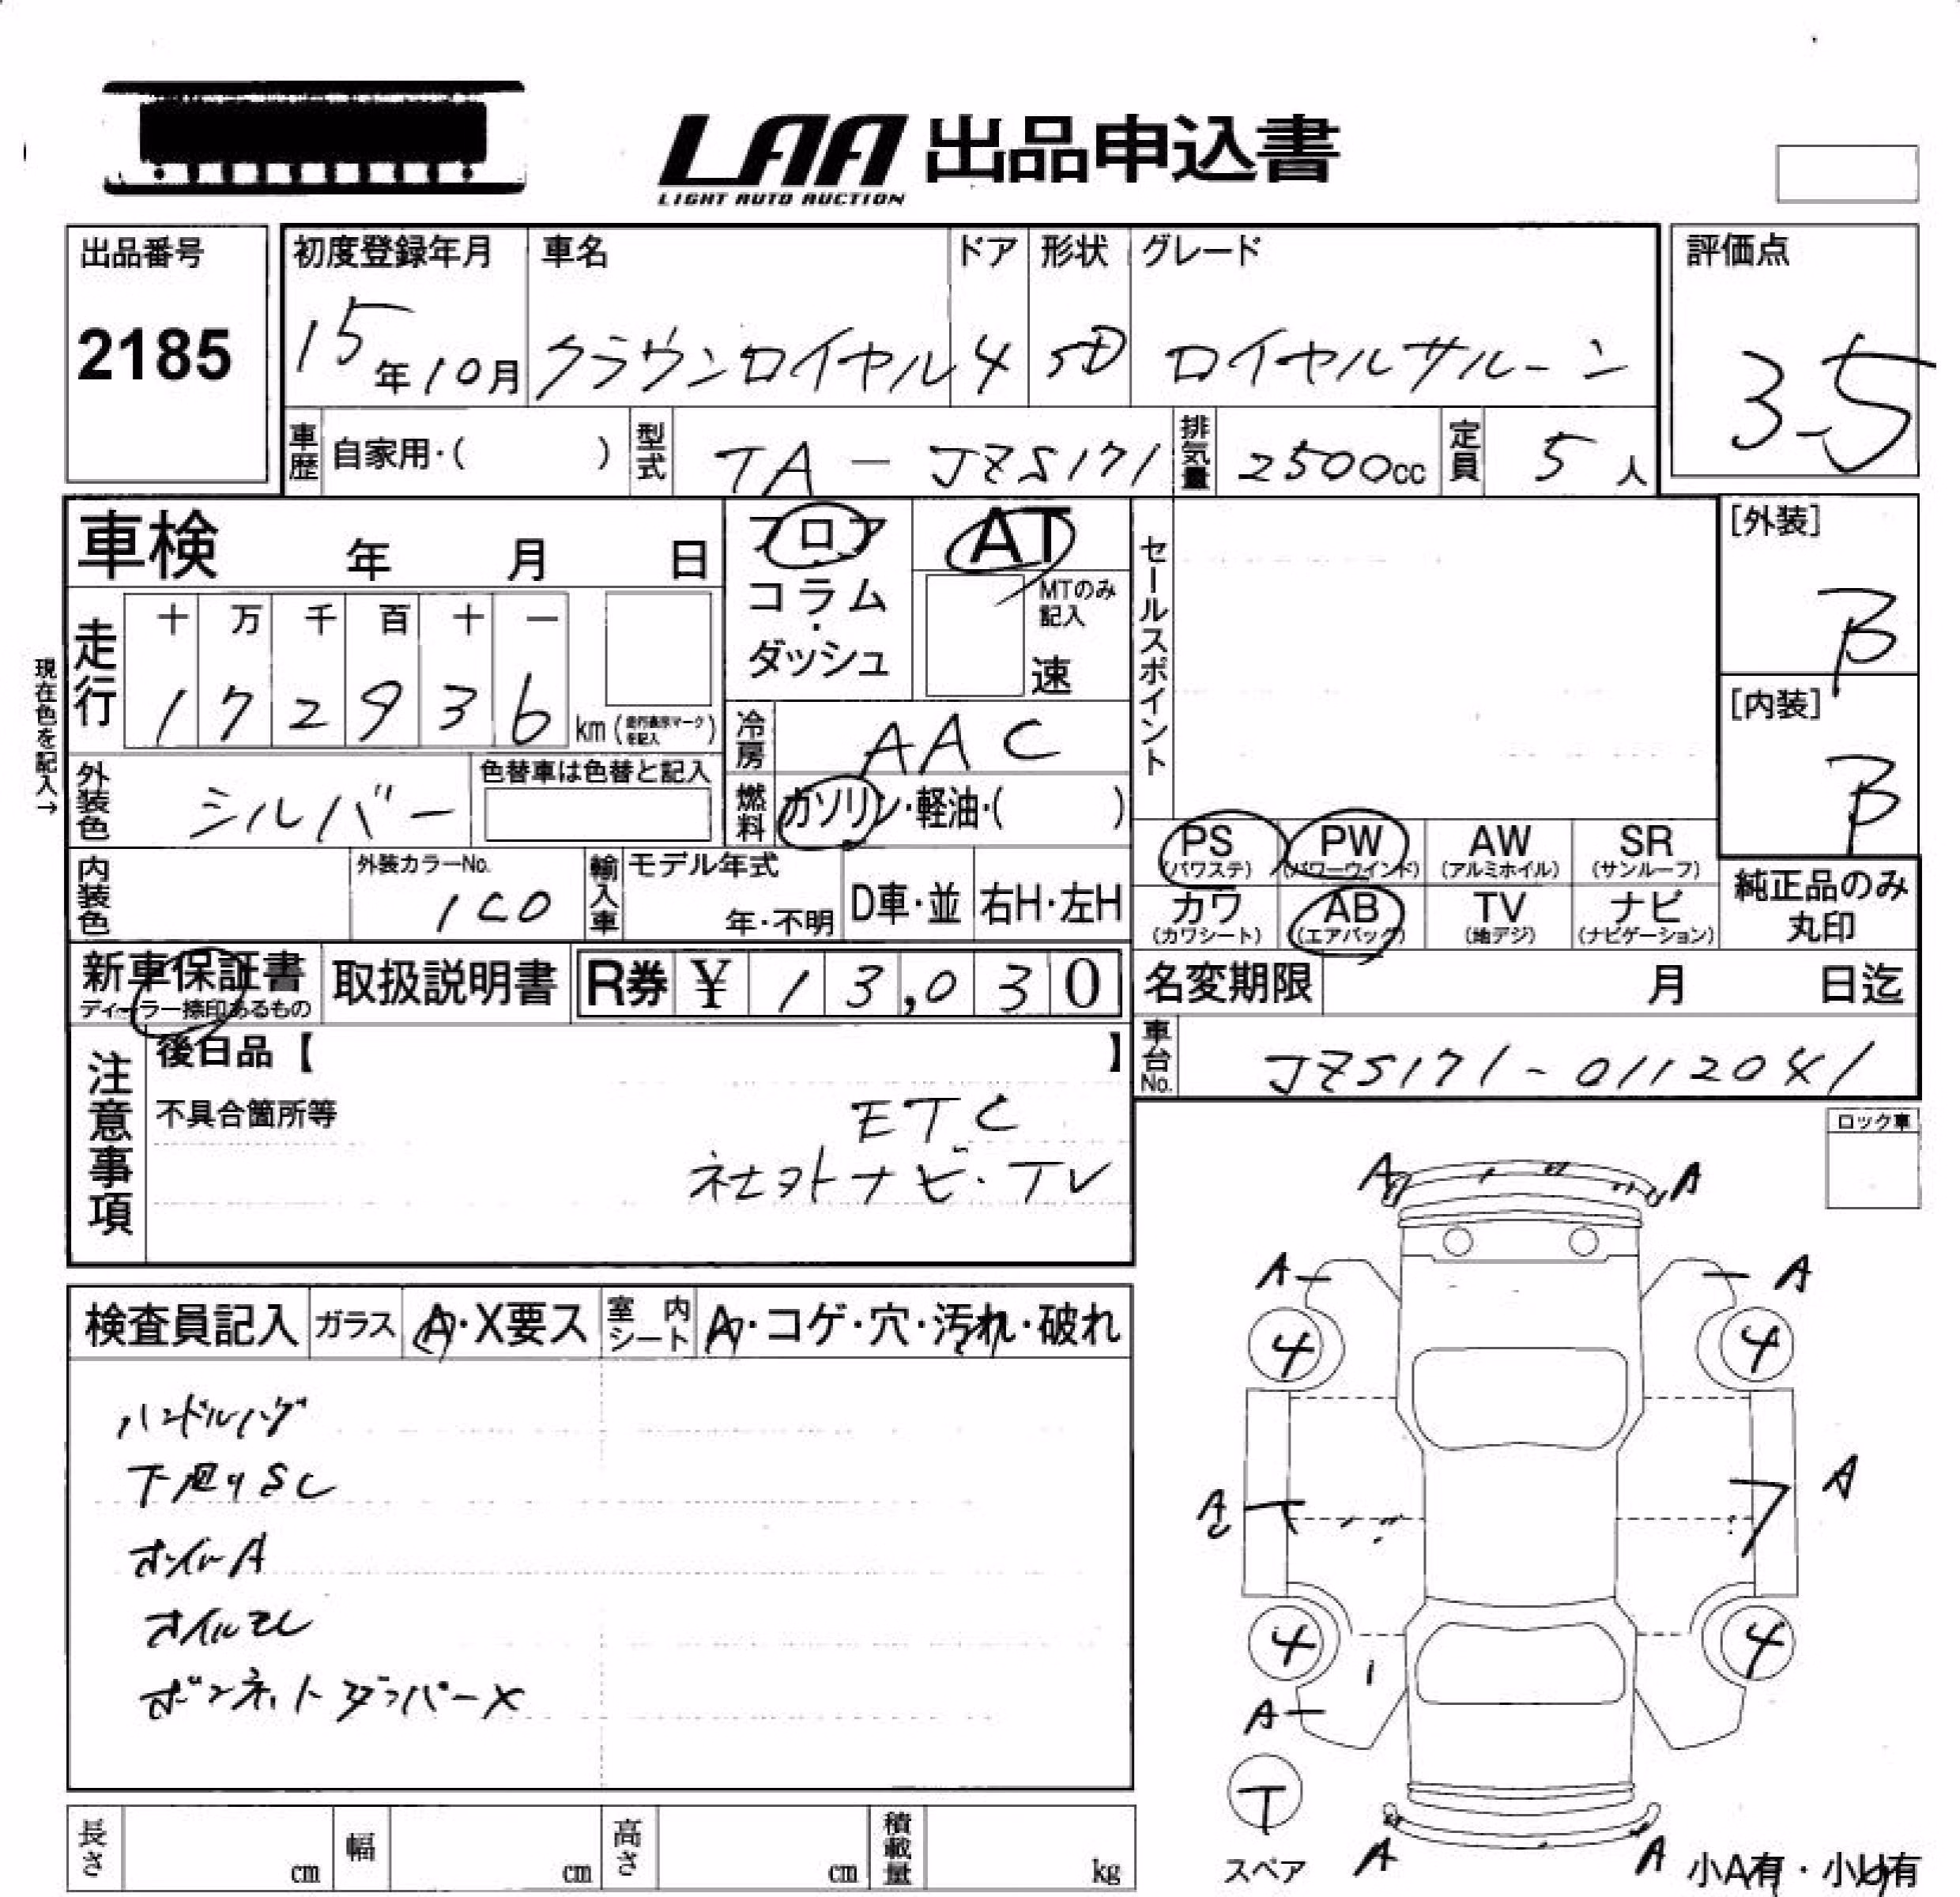 LAA 出品申込書
LIGHT AUTO AUCTION
出品番号
2185
初度登録年月
15年10月
車名
クラウンロイヤル
ドア
4
形状
SD
グレード
ロイヤルサルーン
評価点
3.5
車歴 自家用・( )
型式 TA-JZS171
排気量 2500cc
定員 5人
車検 年 月 日
フロア
コラム
・
ダッシュ
AT
MTのみ
記入
速
セールスポイント
[外装]
B
[内装]
B
現在色を記入→
走行
十 万 千 百 十 一
1 7 2 9 3 6 km (走行表示マークを記入)
冷房 AAC
外装色 シルバー
色替車は色替と記入
燃料 ガソリン・軽油・( )
PS (パワステ)
PW (パワーウインド)
AW (アルミホイル)
SR (サンルーフ)
カワ (カワシート)
AB (エアバック)
TV (地デジ)
ナビ (ナビゲーション)
純正品のみ
丸印
内装色
外装カラーNo.
1C0
輸入車
モデル年式
年・不明
D車・並
右H・左H
新車保証書
ディーラー捺印あるもの
取扱説明書
R券 ¥ 13,030
名変期限 月 日迄
車台No. JZS171-0112041
注意事項
後日品【 】
不具合箇所等
ETC
社外ナビ・TV
ロック車
検査員記入
ガラス A・X要ス
室内シート A・コゲ・穴・汚れ・破れ
ハンドルハゲ
下廻りSC
オイルモレ
ボンネットダンパーX
A A
A A
4 4
A
A
4 4
A
T
スペア
A A
小A有・小U有
長さ cm
幅 cm
高さ cm
積載量 kg